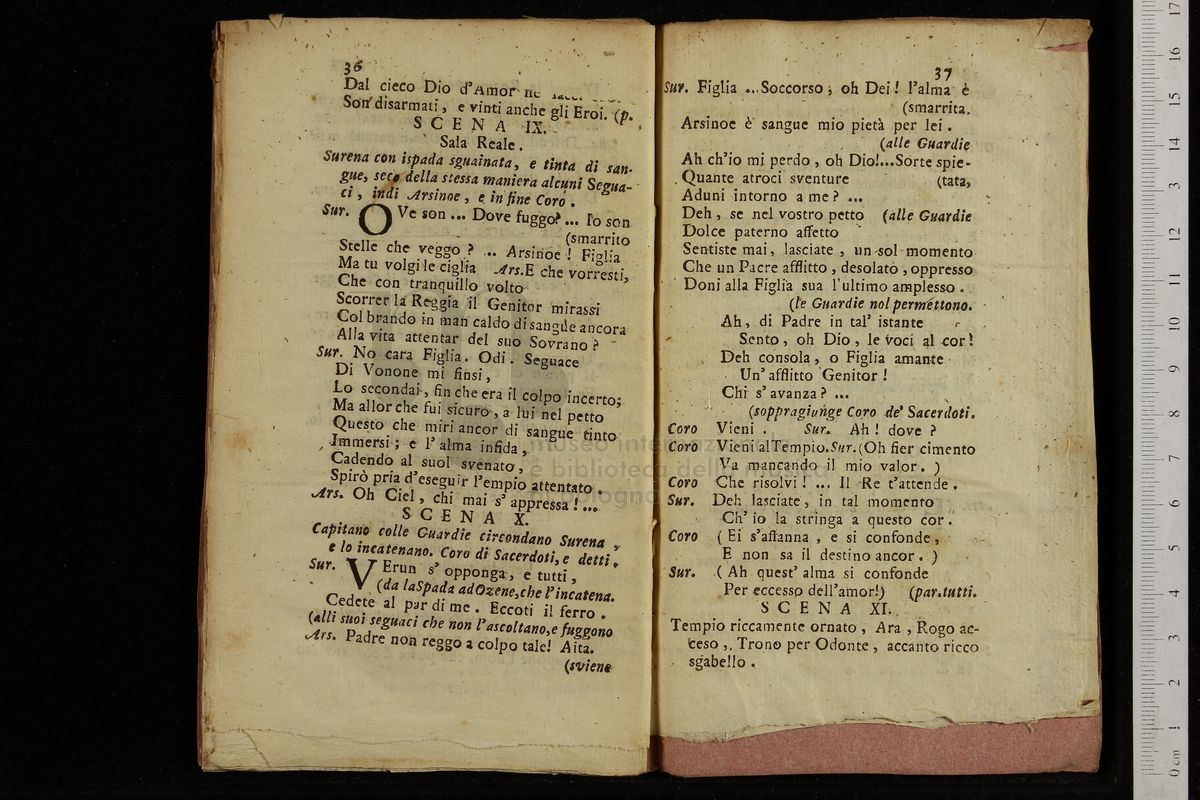 36
Dal cieco Dio d'Amor ne
Son disarmati, e vinti anche gli Eroi. (p.
SCENA IX.
Sala Reale.
Surena con ispada sguainata, e tinta di san-
gue, seco della stessa maniera alcuni Segua-
ci, indi Arsinoe, e in fine Coro.
Sur. OVe son ... Dove fuggo? ... Io son
(smarrito
Stelle che veggo? ... Arsinoe! Figlia
Ma tu volgi le ciglia Ars. E che vorresti,
Che con tranquillo volto
Scorrer la Reggia il Genitor mirassi
Col brando in man caldo di sangue ancora
Alla vita attentar del suo Sovrano?
Sur. No cara Figlia. Odi. Seguace
Di Vonone mi finsi,
Lo secondai, fin che era il colpo incerto;
Ma allor che fui sicuro, a lui nel petto
Questo che miri ancor di sangue tinto
Immersi; e l'alma infida,
Cadendo al suol svenato,
Spirò pria d'eseguir l'empio attentato.
Ars. Oh Ciel, chi mai s'appressa! ...
SCENA X.
Capitano colle Guardie circondano Surena,
e lo incatenano. Coro di Sacerdoti, e detti.
Sur. VErun s'opponga, e tutti,
(da la Spada ad Ozene, che l'incatena.
Cedete al par di me. Eccoti il ferro.
(alli suoi seguaci che non l'ascoltano, e fuggono
Ars. Padre non reggo a colpo tale! Aita.
(sviene
37
Sur. Figlia ... Soccorso; oh Dei! l'alma è
(smarrita.
Arsinoe è sangue mio pietà per lei.
(alle Guardie
Ah ch'io mi perdo, oh Dio! ... Sorte spie-
Quante atroci sventure (tata,
Aduni intorno a me? ...
Deh, se nel vostro petto (alle Guardie
Dolce paterno affetto
Sentiste mai, lasciate, un sol momento
Che un Pacre afflitto, desolato, oppresso
Doni alla Figlia sua l'ultimo amplesso.
(le Guardie nol permettono.
Ah, di Padre in tal' istante
Sento, oh Dio, le voci al cor!
Deh consola, o Figlia amante
Un' afflitto Genitor!
Chi s'avanza? ...
(soppragiunge Coro de' Sacerdoti.
Coro Vieni. Sur. Ah! dove?
Coro Vieni al Tempio. Sur. (Oh fier cimento
Va mancando il mio valor.)
Coro Che risolvi! ... Il Re t'attende.
Sur. Deh lasciate, in tal momento
Ch'io la stringa a questo cor.
Coro (Ei s'affanna, e si confonde,
E non sa il destino ancor.)
Sur. (Ah quest' alma si confonde
Per eccesso dell'amor!) (par. tutti.
SCENA XI.
Tempio riccamente ornato, Ara, Rogo ac-
ceso, Trono per Odonte, accanto ricco
sgabello.
museo internazionale
e biblioteca della musica
di bologna